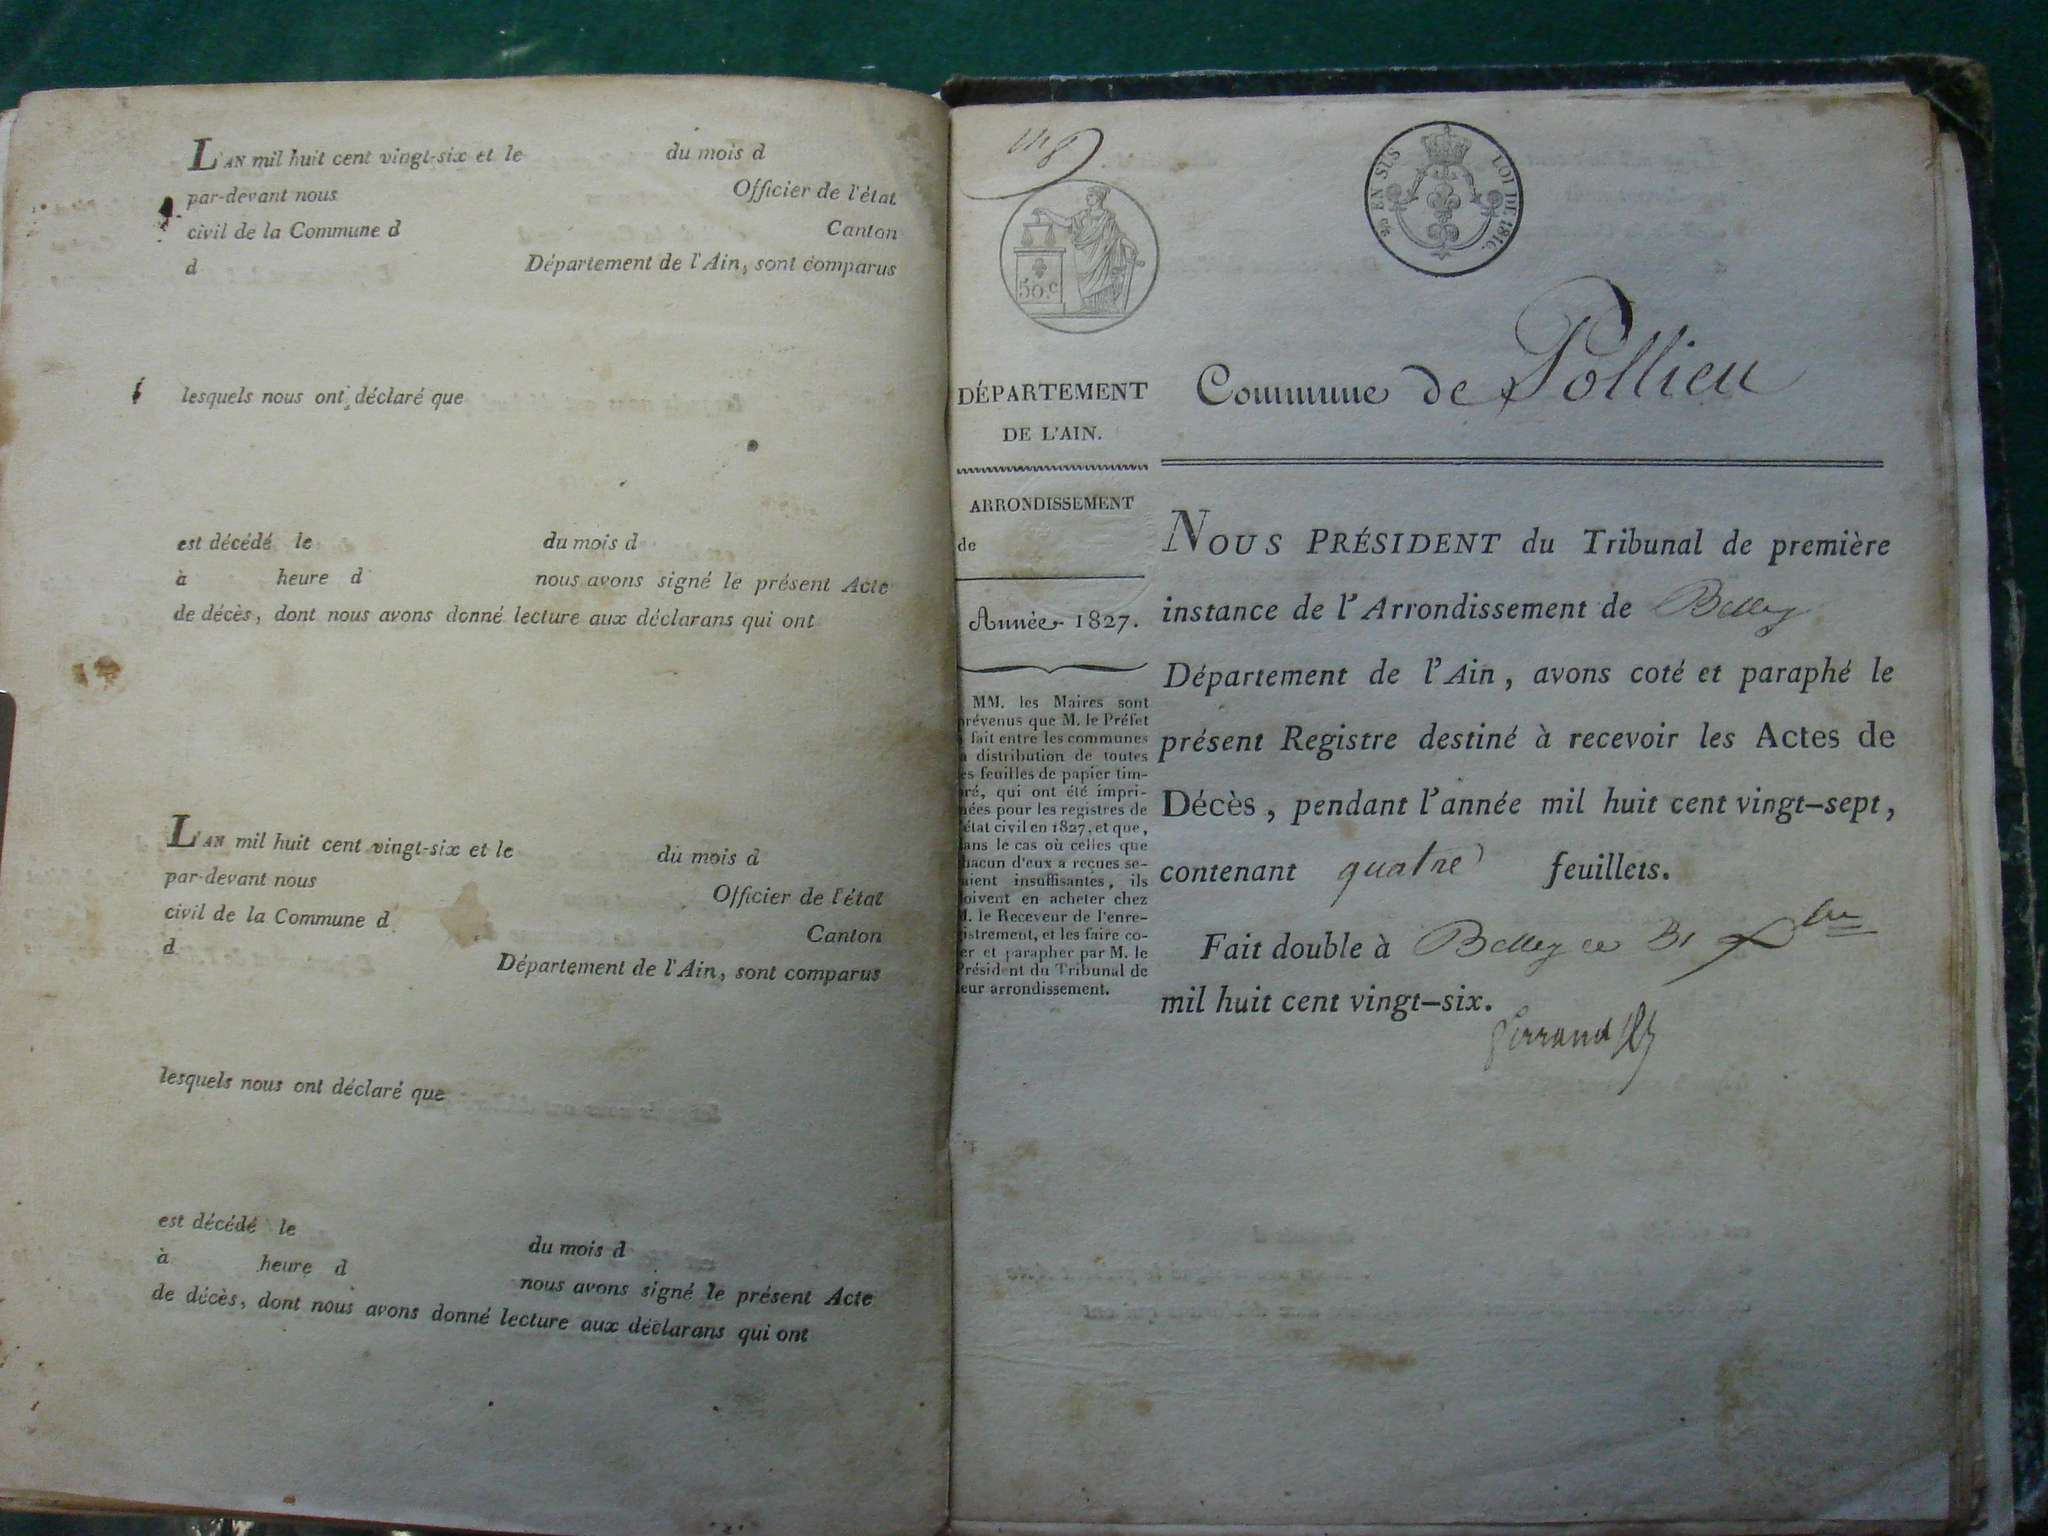 L'AN mil huit cent vingt-six et le du mois d
par-devant nous Officier de l'état
civil de la Commune d Canton
d Département de l'Ain, sont comparus
lesquels nous ont déclaré que
est décédé le du mois d
à heure d nous avons signé le présent Acte
de décès, dont nous avons donné lecture aux déclarans qui ont
L'AN mil huit cent vingt-six et le du mois d
par-devant nous Officier de l'état
civil de la Commune d Canton
d Département de l'Ain, sont comparus
lesquels nous ont déclaré que
est décédé le du mois d
à heure d nous avons signé le présent Acte
de décès, dont nous avons donné lecture aux déclarans qui ont
50.c
EN SUS LOI DE 1816.
DÉPARTEMENT
DE L'AIN.
ARRONDISSEMENT
de
Année 1827.
MM. les Maires sont
prévenus que M. le Préfet
a fait entre les communes
la distribution de toutes
les feuilles de papier tim-
bré, qui ont été impri-
mées pour les registres de
l'état civil en 1827, et que,
dans le cas où celles que
chacun d'eux a reçues se-
raient insuffisantes, ils
doivent en acheter chez
M. le Receveur de l'enre-
gistrement, et les faire co-
ter et parapher par M. le
Président du Tribunal de
leur arrondissement.
Commune de Pollieu
NOUS PRÉSIDENT du Tribunal de première
instance de l'Arrondissement de Belley
Département de l'Ain, avons coté et paraphé le
présent Registre destiné à recevoir les Actes de
Décès, pendant l'année mil huit cent vingt-sept,
contenant quatre feuillets.
Fait double à Belley ce 31 Xbre
mil huit cent vingt-six.